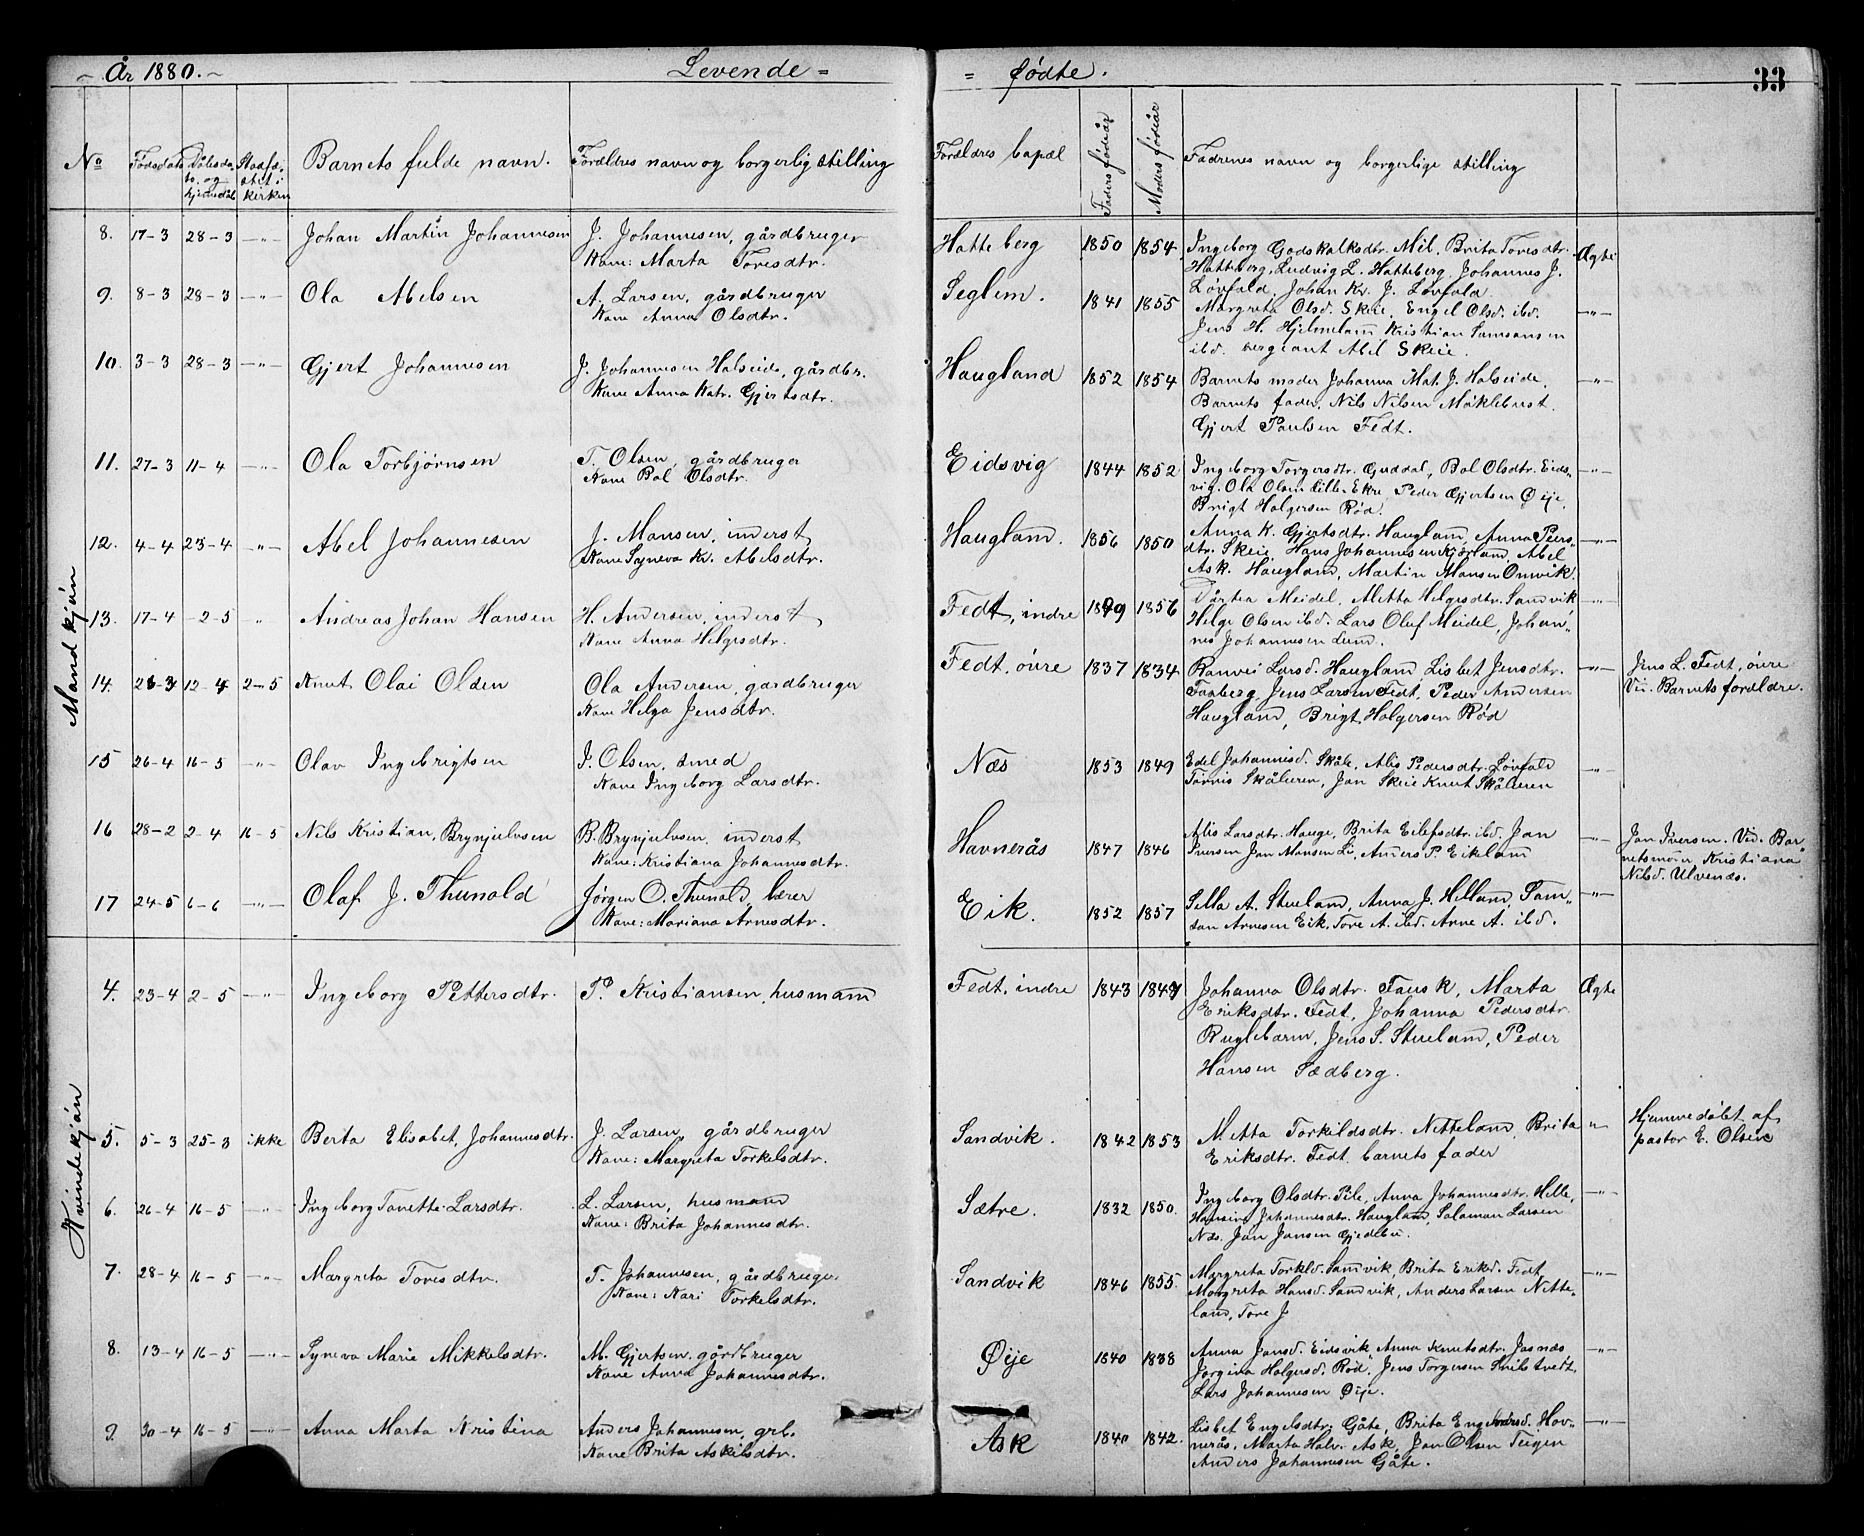 År 1880.
Levende =
= fødte.
33
No
Fødsdato
Dåbsda-
to og
hjemedåb
Stadfæ-
stet i
kirken
Barnets fulde navn.
Forældres navn og borgerlig stilling
Forældres bopæl
Faders fødeår
Moders fødeår
Fadrenes navn og borgerlige stilling
Mandkjøn
8. 17-3 28-3 -"- Johan Martin Johannesen J. Johannesen, gårdbruger
Kone: Marta Toresdtr.
Hatteberg 1850 1854 Ingeborg Godskalksdtr. Mel. Brita Toresdtr. Ægte
Hatteberg, Ludvig L. Hatteberg, Johannes J.
Løvfald, Johan Kr. J. Løvfald.
9. 8-3 28-3 -"- Ola Abelsen A. Larsen, gårdbruger
Kone Anna Olsdtr.
Seglem. 1841 1855 Margreta Olsd. Skeie. Engel Olsd. ibd. -"-
Jens H. Hjelmeland Kristian Samsonsen
ibd. sergeant Abel Skeie.
10. 3-3 28-3 -"- Gjert Johannesen J. Johannesen Halseide, gårdbr.
Kone Anna Katr. Gjertsdtr.
Haugland 1852 1854 Barnets moder Johanna Mat. J. Halseide. -"-
Barnets fader, Nils Nilsen Møklebust.
Gjert Paulsen Fedt.
11. 27-3 11-4 -"- Ola Torbjørnsen T. Olsen, gårdbruger
Kone Bol Olsdtr.
Eidsvig 1844 1852 Ingeborg Torgersdtr. Guddal, Bol Olsdtr. Eids- -"-
vig. Ola Olsen lille-Ekre, Peder Gjertsen Øije.
Brigt Holgersen Rød.
12. 4-4 23-4 -"- Abel Johannesen J. Monsen, inderst
Kone Syneva Kr. Abelsdtr.
Haugland. 1856 1850 Anna K. Gjertsdtr. Haugland, Anna Peers- -"-
dtr. Skeie Hans Johannesen Kjørland, Abel
Ask. Haugland, Martin Monsen Omvik.
13. 17-4 -2-5 " Andreas Johan Hansen H. Andersen, inderst
Kone Anna Helgesdtr.
Fedt, indre 1856 Dårtea Meidel, Metta Helgesdtr. Sandvik -"-
Helge Olsen ibd. Lars Oluf Meidel, Johan-
nes Johannesen Lund.
14. 12-4 2-5 Knut Olai Olsen Ola Andersen, gårdbruger
Kone Helga Jensdtr.
Fedt, øvre 1837 1834 Ranvei Larsd. Haugland Lisbet Jensdtr. -"- Jens L. Fedt, øvre
Tagberg Jens Larsen Fedt, Peder Andersen Vii. Barnets foreldre.
Haugland, Brigt Holgersen Rød
15 26-4 16-5 -"- Olav Ingebrigtsen I. Olsen, smed
Kone Ingeborg Larsdtr.
Næs 1853 1849 Edel Johannisd. Skåle, Alis Pedersdtr. Løvfald -"-
Tørris Skåluren, Jan Skeie Knut Skåluren
16 28-2 2-4 16-5 Nils Kristian, Brynjulvsen B. Brynjulvsen, inderst
Kone: Kristiana Johannesdtr.
Havnerås 1847 1846 Alis Larsdtr. Hauge, Brita Eilefsdtr. ibd. Jan -"- Jan Iversen. Vid. Bar-
Iversen Jan Monsen Li, Anders P. Eikeland netsmoder Kristiana
Nilsd. Ulvenæs.
17 24-5 6-6 -"- Olaf J. Thunold Jørgen O. Thunold, lærer
Kone: Mariana Arnesdtr.
Eik. 1852 1857 Sella A. Stueland, Anna J. Helland, Sam- -"-
son Arnesen Eik, Tore A. ibd. Arne A. ibd.
Kvindekjøn
4. 23-4 2-5 -"- Ingeborg Pettersdtr. P. Kristiansen, husmand
Fedt, indre 1843 Johanna Olsdtr. Tausk, Marta Ægte
Eriksdtr. Fedt, Johanna Pedersdtr.
Ruglebarm, Jens S. Stueland, Peder
Hansen Sædberg.
5. 5-3 25-3 ikke Berta Elisabet, Johannesdtr. J. Larsen, gårdbruger
Kone: Margreta Torkelsdtr.
Sandvik. 1842 1853 Metta Torkildsdtr. Netteland, Brita " Hjemmedøbt af
Eriksdtr. Fedt. barnets fader pastor E. Olsen
6. 26-4 16-5 -"- Ingeborg Tonette Larsdtr. L. Larsen, husmand
Kone: Brita Johannesdtr.
Sætre. 1832 1850. Ingeborg Olsdtr. Pile, Anna Johannesdtr. Hille, -"-
Hansine Johannesdtr. Haugland, Salamon Larsen
Næs. Jan Jansen Gjedebu.
7. 28-4 16-5 -"- Margreta Toresdtr. T. Johannesen, gårdbruger
Kone: Kari Torkelsdtr.
Sandvik 1846 1855. Margreta Torkld. Sandvik, Brita Eriksd. Fedt, -"-
Margreta Hansd. Sandvik, Anders Larsen Nitte-
land, Tore J
8. 13-4 16-5 -"- Syneva Marie Mikkelsdtr. M. Gjertsen, gårdbruger
Kone Anna Johannesdtr.
Øije 1840 1838 Anna Jansd. Eidsvik Anna Knutsdtr. Jasnæs -"-
Jørgina Holgersd. Rød, Jens Torgersen Snilstveit.
Lars Johannesen Øije.
9. 30-4 16-5 -"- Anna Marta Kristina Anders Johannesen, grb.
Kone Brita Askilsdtr.
Ask 1840 1842. Lisbet Engelsdtr. Gåte, Brita Hov- -"-
nerås, Marta Halv. Ask, Jan Olsen Teigen
Anders Johannesen Gåte.